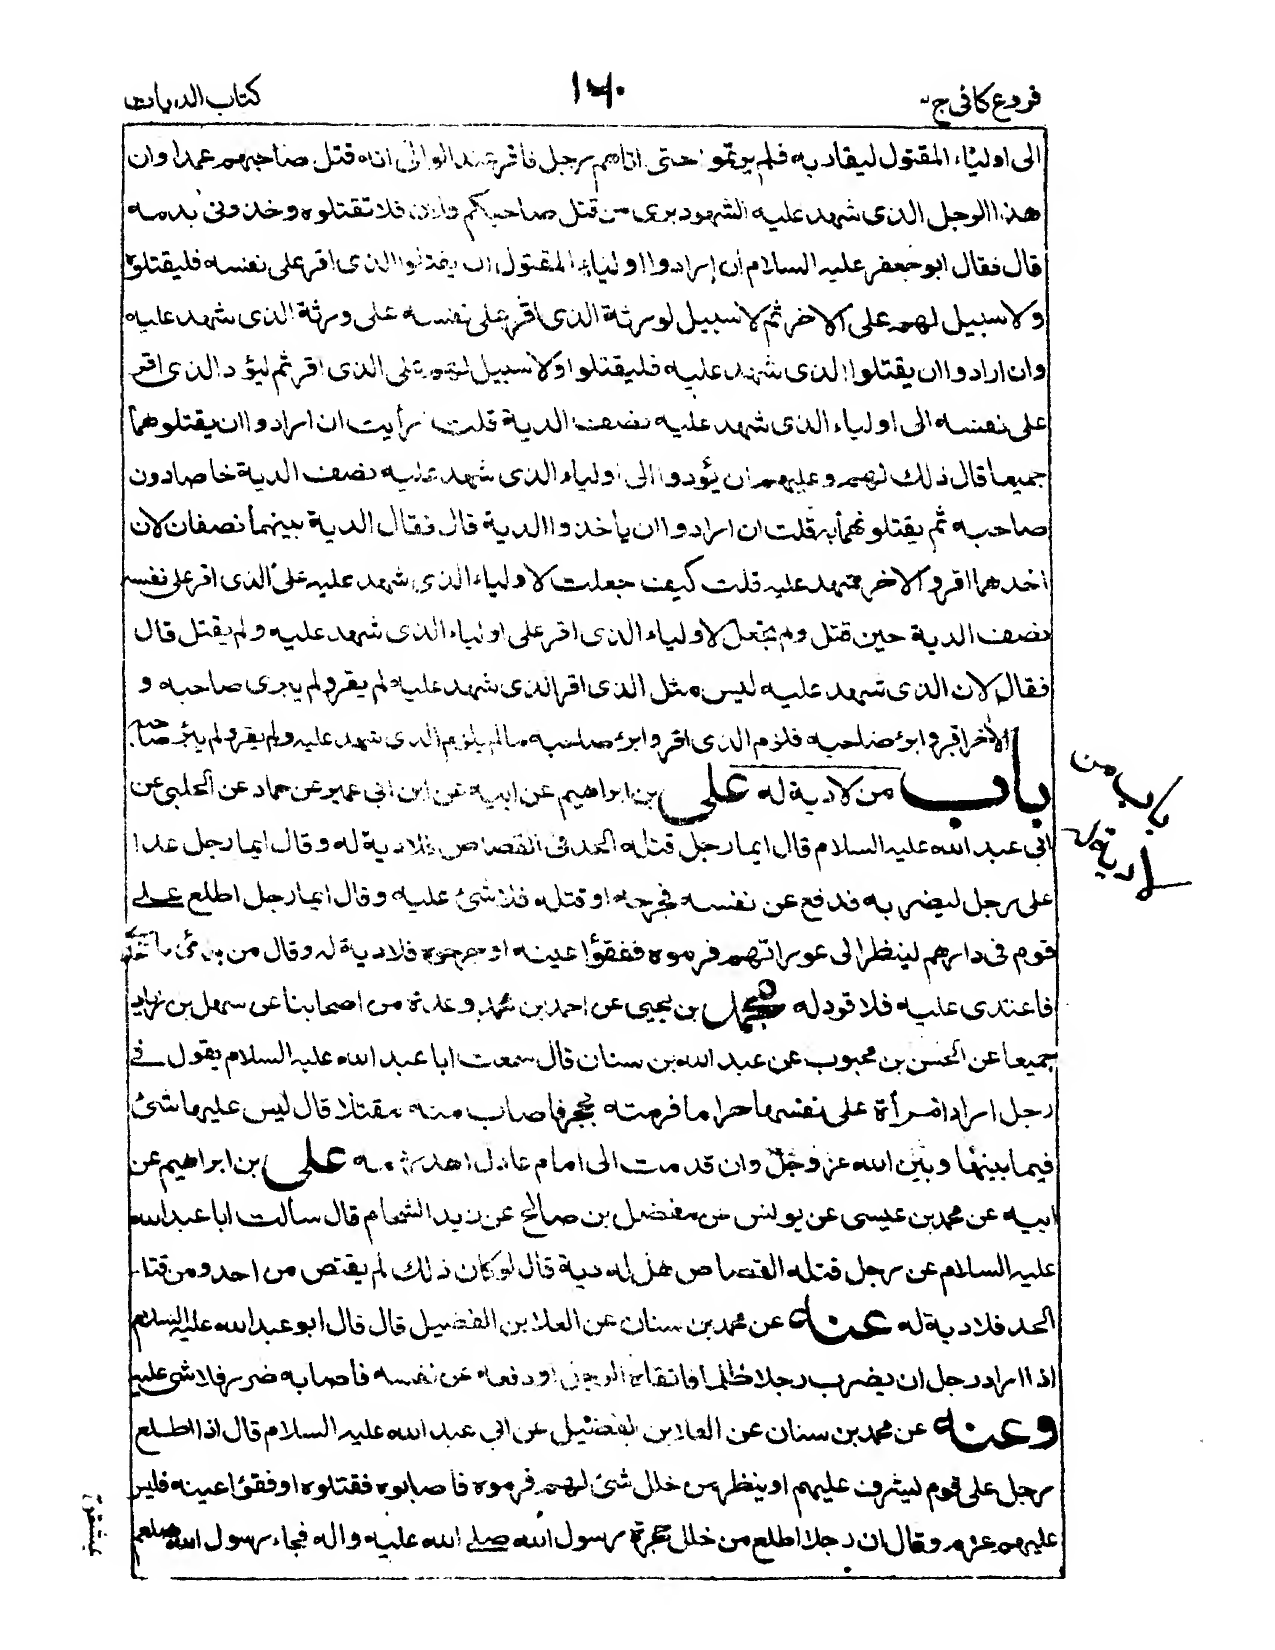 فروع كافى ج ٣
١٦٠
كتاب الديات
الى اولياء المقتول ليقاد به فلم يريموا حتى اتاهم رجل فاقر عند الوالى انه قتل صاحبهم عمدا وان
هذا الرجل الذى شهد عليه الشهود برى من قتل صاحبكم فلان فلا تقتلوه وخذونى بدمه
قال فقال ابو جعفر عليه السلام ان ارادوا اولياء المقتول ان يقتلوا الذى اقر على نفسه فليقتلوه
ولا سبيل لهم على الاخر ثم لا سبيل لورثة الذى اقر على نفسه على ورثة الذى شهد عليه
وان ارادوا ان يقتلوا الذى شهد عليه فليقتلوا ولا سبيل لهم على الذى اقر ثم ليؤد الذى اقر
على نفسه الى اولياء الذى شهد عليه نصف الدية قلت ارأيت ان ارادوا ان يقتلوهما
جميعا قال ذلك لهم وعليهم ان يؤدوا الى اولياء الذى شهد عليه نصف الدية خاصا دون
صاحبه ثم يقتلونهما به قلت ان ارادوا ان ياخذوا الدية قال فقال الدية بينهما نصفان لان
احدهما اقر والاخر شهد عليه قلت كيف جعلت لاولياء الذى شهد عليه على الذى اقر على نفسه
نصف الدية حين قتل ولم يجعل لاولياء الذى اقر على اولياء الذى شهد عليه ولم يقتل قال
فقال لان الذى شهد عليه ليس مثل الذى اقر الذى شهد عليه لم يقر ولم يبرى صاحبه و
الاخر اقر وابرئ صاحبه فلزم الذى اقر وابرئ صاحبه ما لم يلزم الذى شهد عليه ولم يقر ولم يبرئ صاحبه
باب من لا دية له على بن ابراهيم عن ابيه عن ابن ابى عمير عن حماد عن الحلبى عن
باب من
لا دية له
ابى عبد الله عليه السلام قال ايما رجل قتله الحد فى القصاص فلا دية له وقال ايما رجل عدا
على رجل ليضربه فدفع عن نفسه فجرحه او قتله فلا شئ عليه وقال ايما رجل اطلع على
قوم فى دارهم لينظر الى عوراتهم فرموه ففقؤا عينه او جرحوه فلا دية له وقال من
فاعتدى عليه فلا قود له محمد بن يحيى عن احمد بن محمد وعدة من اصحابنا عن سهل بن زياد
جميعا عن الحسن بن محبوب عن عبد الله بن سنان قال سمعت ابا عبد الله عليه السلام يقول فى
رجل اراد امرأة على نفسها حراما فرمته بحجر فاصاب منه مقتلا قال ليس عليها شئ
فيما بينها وبين الله عز وجل وان قدمت الى امام عادل اهدر دمه على بن ابراهيم عن
ابيه عن محمد بن عيسى عن يونس عن مفضل بن صالح عن زيد الشحام قال سألت ابا عبد الله
عليه السلام عن رجل قتله القصاص هل له دية قال لو كان ذلك لم يقتص من احد ومن قتله
الحد فلا دية له عنه عن محمد بن سنان عن العلا بن الفضيل قال قال ابو عبد الله عليه السلام
اذا اراد رجل ان يضرب رجلا ظلما فاتقاه الرجل او دفعه عن نفسه فاصابه ضرر فلا شئ عليه
وعنه عن محمد بن سنان عن العلا بن الفضيل عن ابى عبد الله عليه السلام قال اذا اطلع
رجل على قوم ليشرف عليهم او ينظر من خلل شئ لهم فرموه فاصابوه فقتلوه او فقئوا عينه فليس
عليهم عزم وقال ان رجلا اطلع من خلل حجرة رسول الله صلى الله عليه واله فجاء رسول الله صلعم